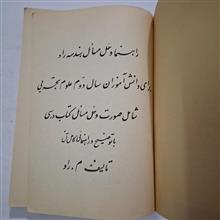 راهنما و حل مسائل هندسه راد
برای دانش آموزان سال دوم علوم تجربی
شامل صورت و حل مسائل کتاب درسی
با توضیح و راهنمائی کامل
تالیف م . راد